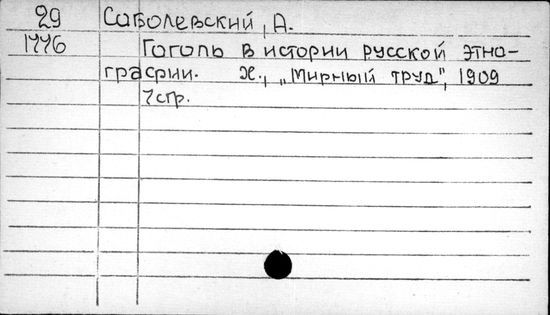 29 Соболевский, А.
1776 Гоголь в истории русской этно-
графии. Х., „Мирный труд", 1909
7стр.